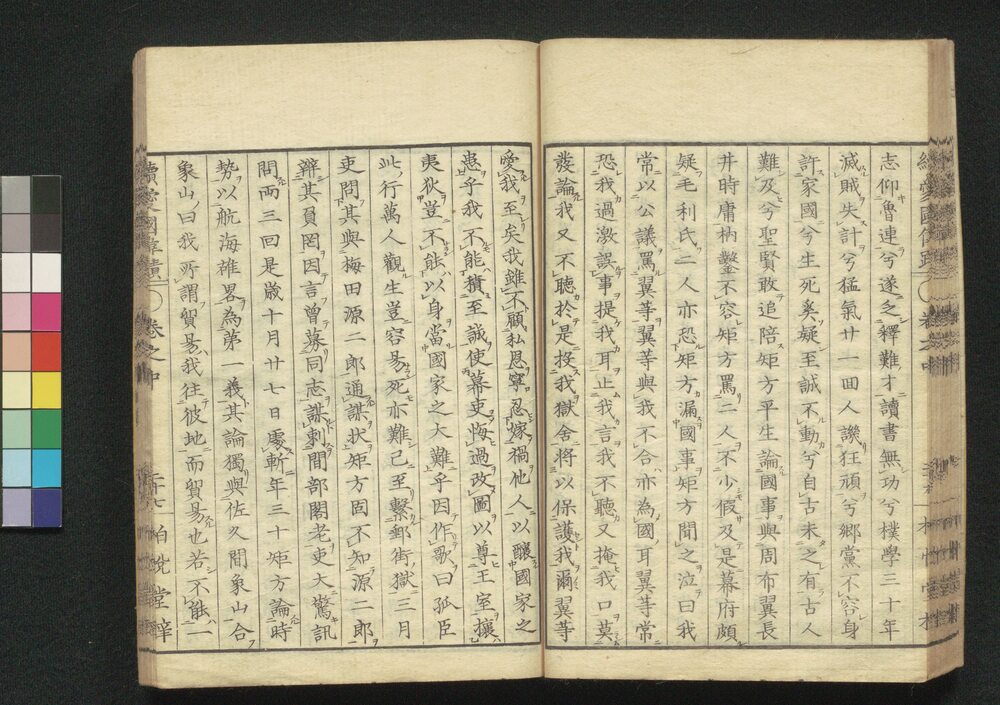 志仰魯連兮遂乏釋難才讀書無功兮樸學三十年
滅賊失計兮猛氣廿一回人譏狂頑兮鄉黨不容身
許家國兮生死奚疑至誠不動兮自古未之有古人
難及兮聖賢敢追陪矩方平生論國事與周布翼長
井時庸枘鑿不容矩方罵二人不少假及是幕府頗
疑毛利氏二人亦恐矩方漏國事矩方聞之泣曰我
常以公議罵翼等翼等與我不合亦為國耳翼等常
恐我過激誤事提我耳止我言我不聽又掩我口莫
發論我又不聽於是投我獄舍將以保護我爾翼等
愛我至矣我雖不顧私恩寧忍嫁禍他人以釀國家之
患乎我不能積至誠使幕吏悔過改圖以尊王室攘
夷狄豈不能以身當國家之大難乎因作歌曰孤臣
此行萬人觀生豈容易死亦難已至繫郵街獄三月
吏問其與梅田源二郎通謀狀矩方固不知源二郎
辯其員罔因言曾募同志謀刺間部閣老吏大驚訊
問兩三回是歲十月廿七日處斬年三十矩方論時
勢以航海雄畧為第一義其論獨與佐久間象山合
象山曰我所謂貿易我往彼地而貿易也若不能一
續愛國事蹟 卷之中 柏悅堂梓